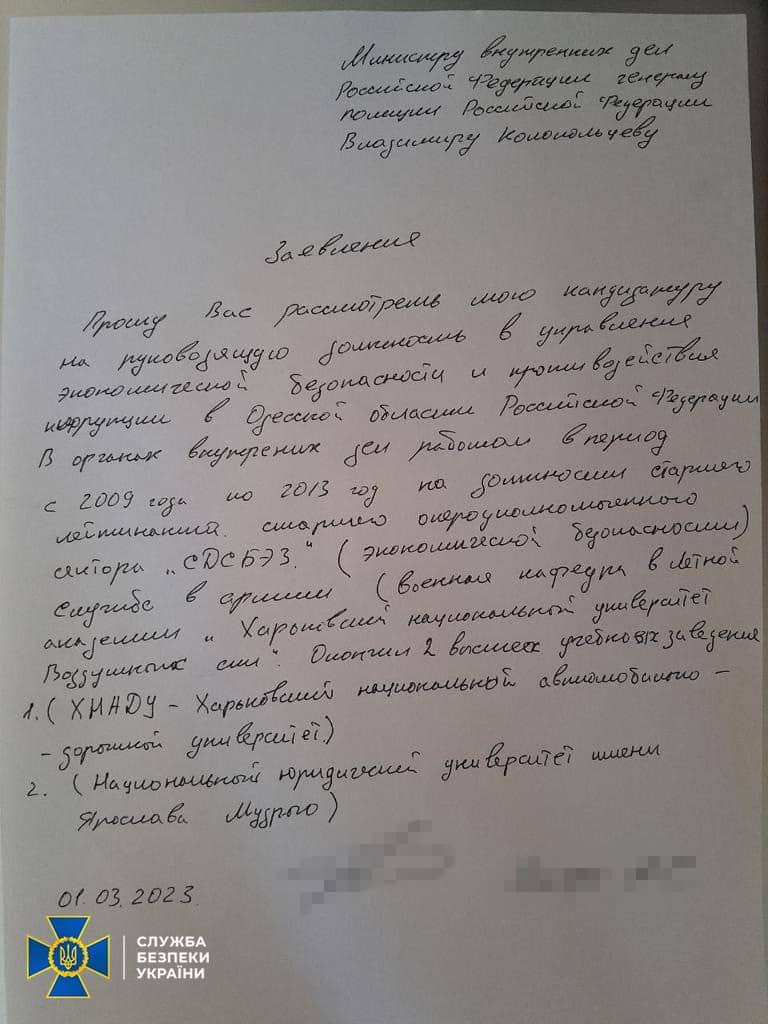 Министру внутренних дел
Российской Федерации генералу
полиции Российской Федерации
Владимиру Колокольцеву
Заявления
Прошу Вас рассмотреть мою кандидатуру
на руководящую должность в управления
экономической безопасности и противодействия
коррупции в Одесской области Российской Федерации
В органах внутрених дел работал в период
с 2009 года по 2013 год на должности старшего
лейтинанта. старшего оперуполномоченного
сектора „СДСБЭЗ." (экономической безопасности)
Служба в армии (военная кафедра в Летной
академии „Харьковский национальной университет
Воздушных сил". Окончил 2 высших учебных заведения
1. (ХНАДУ - Харьковский национальной автомобильно -
- дорожной университет.)
2. (Национальный юридический университет имени
Ярослава Мудрого)
01.03.2023.
СЛУЖБА
БЕЗПЕКИ
УКРАЇНИ